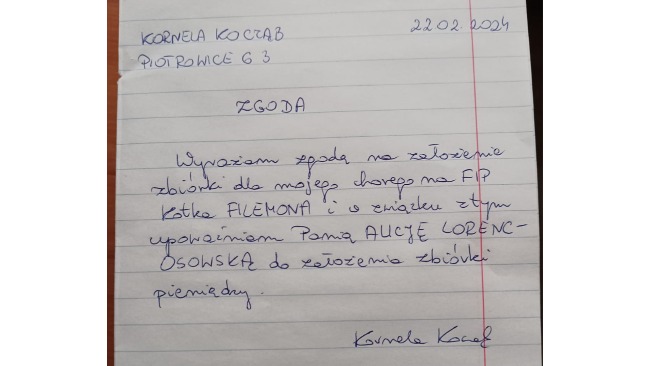 KORNELA KOCZĄB 22.02.2024
PIOTROWICE 63
ZGODA
Wyrażam zgodę na założenie
zbiórki dla mojego chorego na FIP
kotka FILEMONA i w związku z tym
upoważniam Panią ALICJĘ LORENC-
OSOWSKĄ do założenia zbiórki
pieniędzy.
Kornela